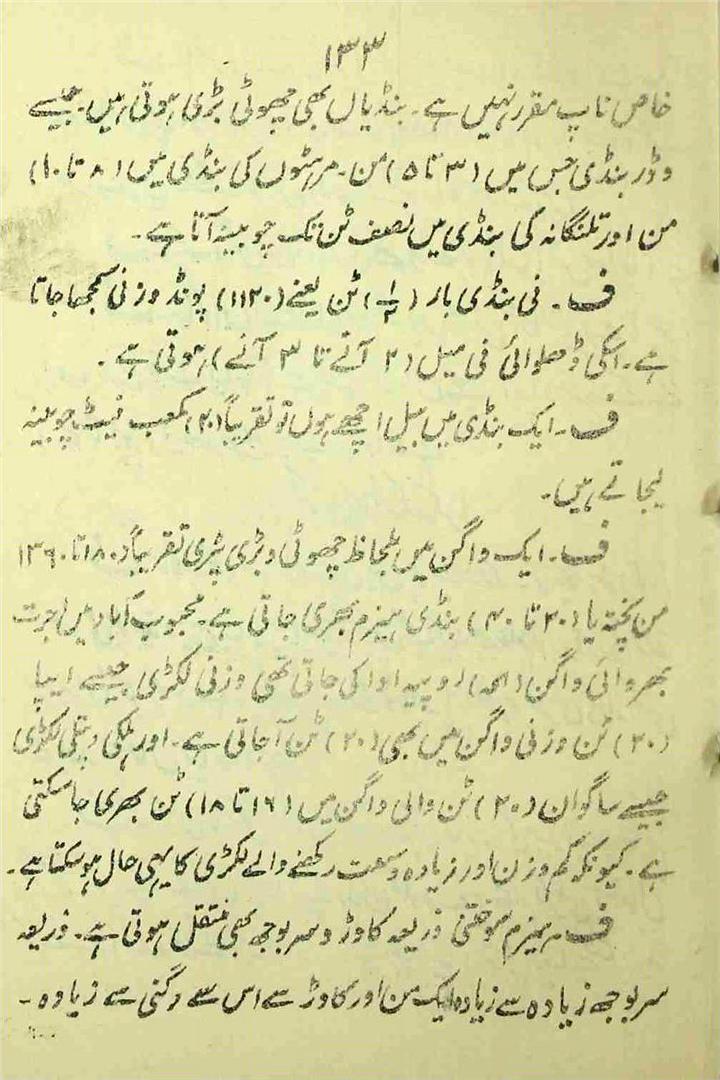 ۱۳۳
خاص ناپ مقرر نہیں ہے ۔ بنڈیاں بھی چھوٹی بڑی ہوتی ہیں ۔ جیسے
وڈر بنڈی جس میں (۳ تا ۵) من ۔ مرہٹوں کی بنڈی میں (۸ تا ۱۰)
من اور تلنگانہ کی بنڈی میں نصف ٹن تک چوبینہ آتا ہے ۔
ف ۔ فی بنڈی بار (۱/۲) ٹن یعنے (۱۱۲۰) پونڈ وزنی سمجھا جاتا
ہے ۔ اسکی ڈھلوائی فی میل (۲ آنے تا ۳ آنے) ہوتی ہے ۔
ف ۔ ایک بنڈی میں بیل اچھے ہوں تو تقریباً (۲۰) مکعب فیٹ چوبینہ
لیجاتے ہیں ۔
ف ۔ ایک واگن میں بلحاظ چھوٹی و بڑی پٹری تقریباً ۱۸۰ تا ۱۳۶۰
من پختہ یا (۲۰ تا ۴۰) بنڈی ہیزم بھری جاتی ہے ۔ محبوب آباد میں اجرت
بھروائی واگن روپیہ ادا کی جاتی تھی وزنی لکڑی جیسے ایپا
(۲۰) ٹن وزنی واگن میں بھی (۲۰) ٹن آجاتی ہے ۔ اور ہلکی و پتلی لکڑی
جیسے ساگوان (۲۰) ٹن والی واگن میں (۱۶ تا ۱۸) ٹن بھری جاسکتی
ہے ۔ کیونکہ کم وزن اور زیادہ وسعت رکھنے والے لکڑی کا یہی حال ہوسکتا ہے ۔
ف ۔ ہیزم سوختنی ذریعہ کاوڑ و سر بوجھ بھی منتقل ہوتی ہے ۔ ذریعہ
سر بوجھ زیادہ سے زیادہ ایک من اور کاوڑ سے اس سے دگنی سے زیادہ ۔